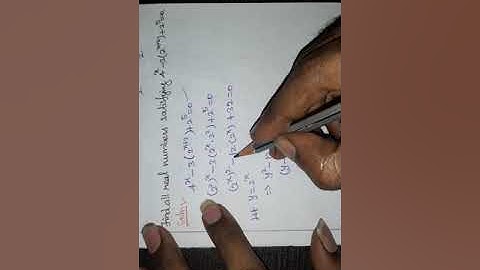 Find all real numbers satisfying 4^x - 3(2^{x+2}) + 2^5 = 0
Soln:-
4^x - 3(2^{x+2}) + 2^5 = 0
(2^2)^x - 3(2^x · 2^2) + 2^5 = 0
(2^x)^2 - 12(2^x) + 32 = 0
let y = 2^x
⇒ y^2 -
(y -